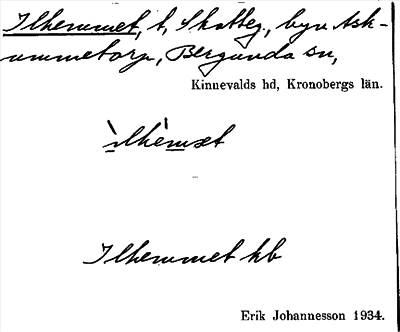 Ilhemmet, t, Skatteg., byn Ask-
ummetorp, Bergunda sn,
Kinnevalds hd, Kronobergs län.
Ilhemmet kb
Erik Johannesson 1934.